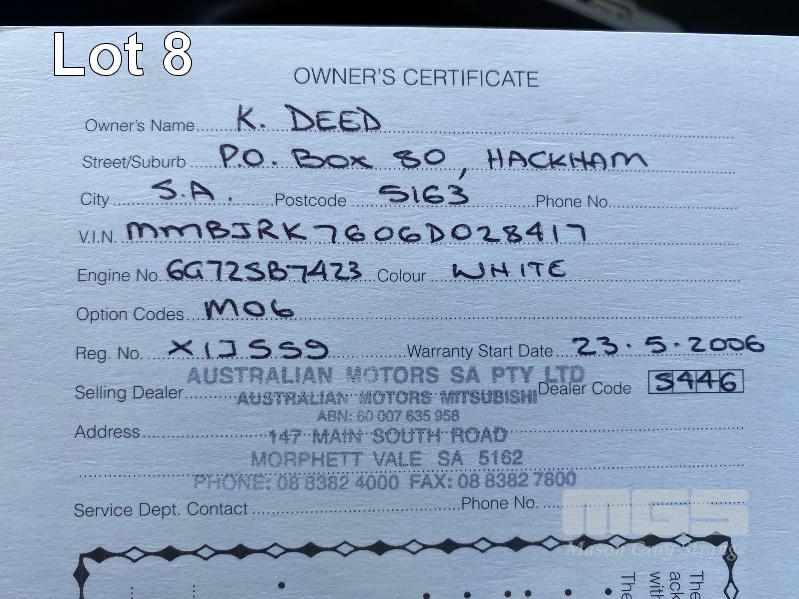 Lot 8
OWNER'S CERTIFICATE
Owner's Name K. DEED
Street/Suburb P.O. BOX 80, HACKHAM
City S.A. Postcode 5163 Phone No.
V.I.N. MMBJRK7606D028417
Engine No 6G72SB7423 Colour WHITE
Option Codes M06
Reg. No. XIJ559 Warranty Start Date 23.5.2006
AUSTRALIAN MOTORS SA PTY LTD
Selling Dealer AUSTRALIAN MOTORS MITSUBISHI Dealer Code S446
ABN: 60 007 635 958
Address 147 MAIN SOUTH ROAD
MORPHETT VALE SA 5162
PHONE: 08 8382 4000 FAX: 08 8382 7800
Service Dept. Contact Phone No.
MGS
Mason Gray Strange
The
ack
with
The